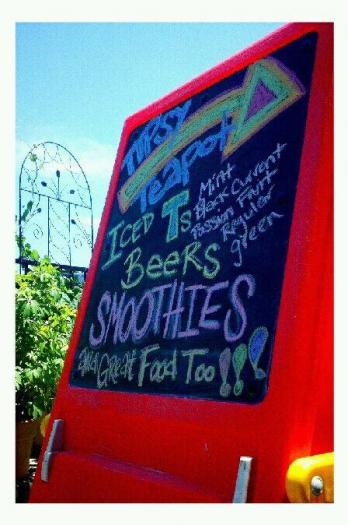 Tipsy
Teapot
Iced Ts
Mint
Black Current
Passion Fruit
Regular
green
Beers
SMOOTHIES
and Great Food Too!!!